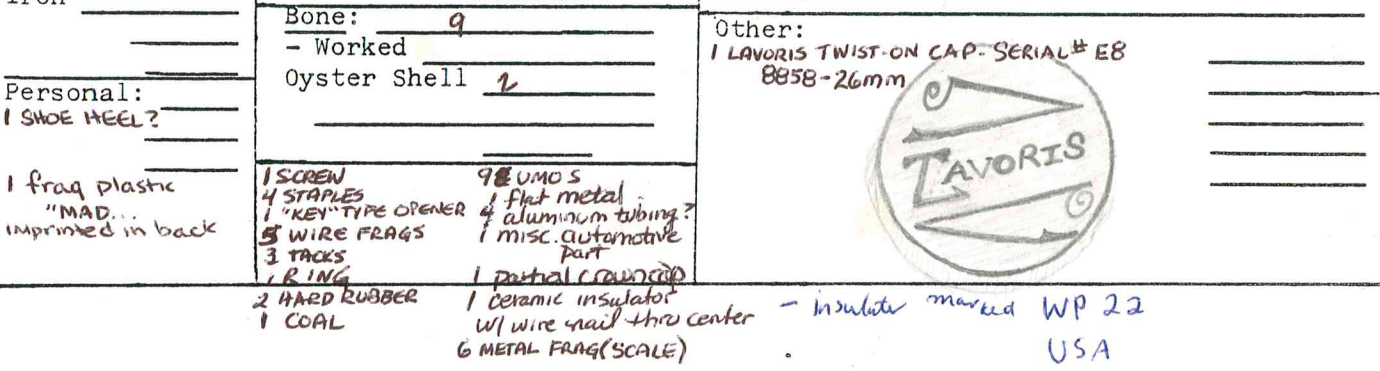 Personal:
1 SHOE HEEL?
1 frag plastic
"MAD...
imprinted in back
Bone: 9
- Worked
Oyster Shell 2
1 SCREW
4 STAPLES
1 "KEY" TYPE OPENER
5 WIRE FRAGS
3 TACKS
1 RING
2 HARD RUBBER
1 COAL
9 UMOS
1 flat metal
4 aluminum tubing?
1 misc. automotive
part
1 partial crowncap
1 ceramic insulator
w/ wire nail thru center
6 METAL FRAG (SCALE)
Other:
1 LAVORIS TWIST-ON CAP- SERIAL # E8
8858-26mm
LAVORIS
- insulator marked WP 22
USA